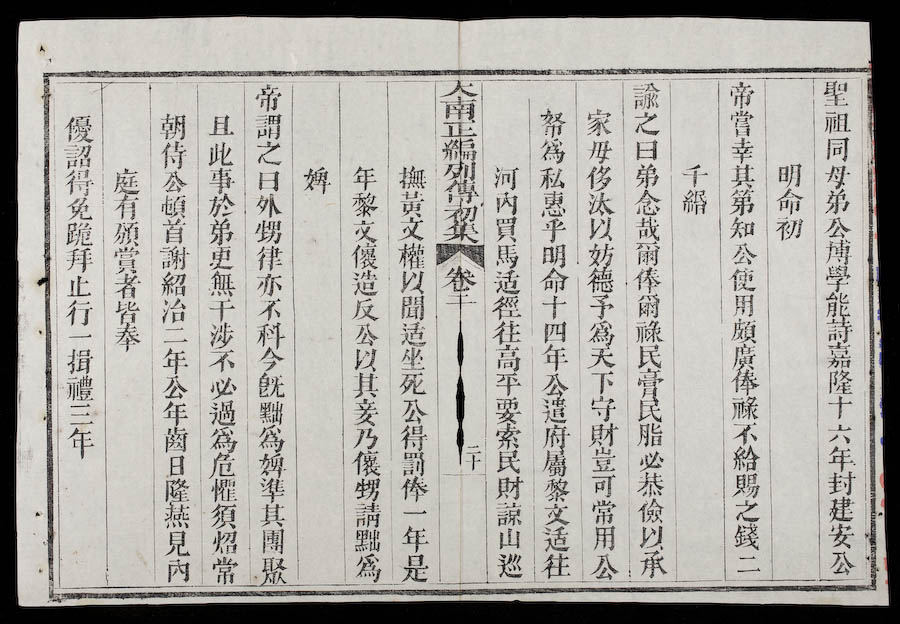 聖祖同母弟公博學能詩嘉隆十六年封建安公
明命初
帝嘗幸其第知公使用頗廣俸祿不給賜之錢二
千緡
諭之曰弟念哉爾俸爾祿民膏民脂必恭儉以承
家毋侈汰以妨德予爲天下守財豈可常用公
帑爲私惠乎明命十四年公遣府屬黎文适往
河內買馬适徑往高平要索民財諒山巡
大南正編列傳初集 卷二 二十
撫黃文權以聞适坐死公得罰俸一年是
年黎文儴造反公以其妾乃儴甥請黜爲
婢
帝謂之曰外甥律亦不科今旣黜爲婢準其團聚
且此事於弟更無干涉不必過爲危懼須炤常
朝侍公頓首謝紹治二年公年齒日隆燕見內
庭有頒賞者皆奉
優詔得免跪拜止行一揖禮三年